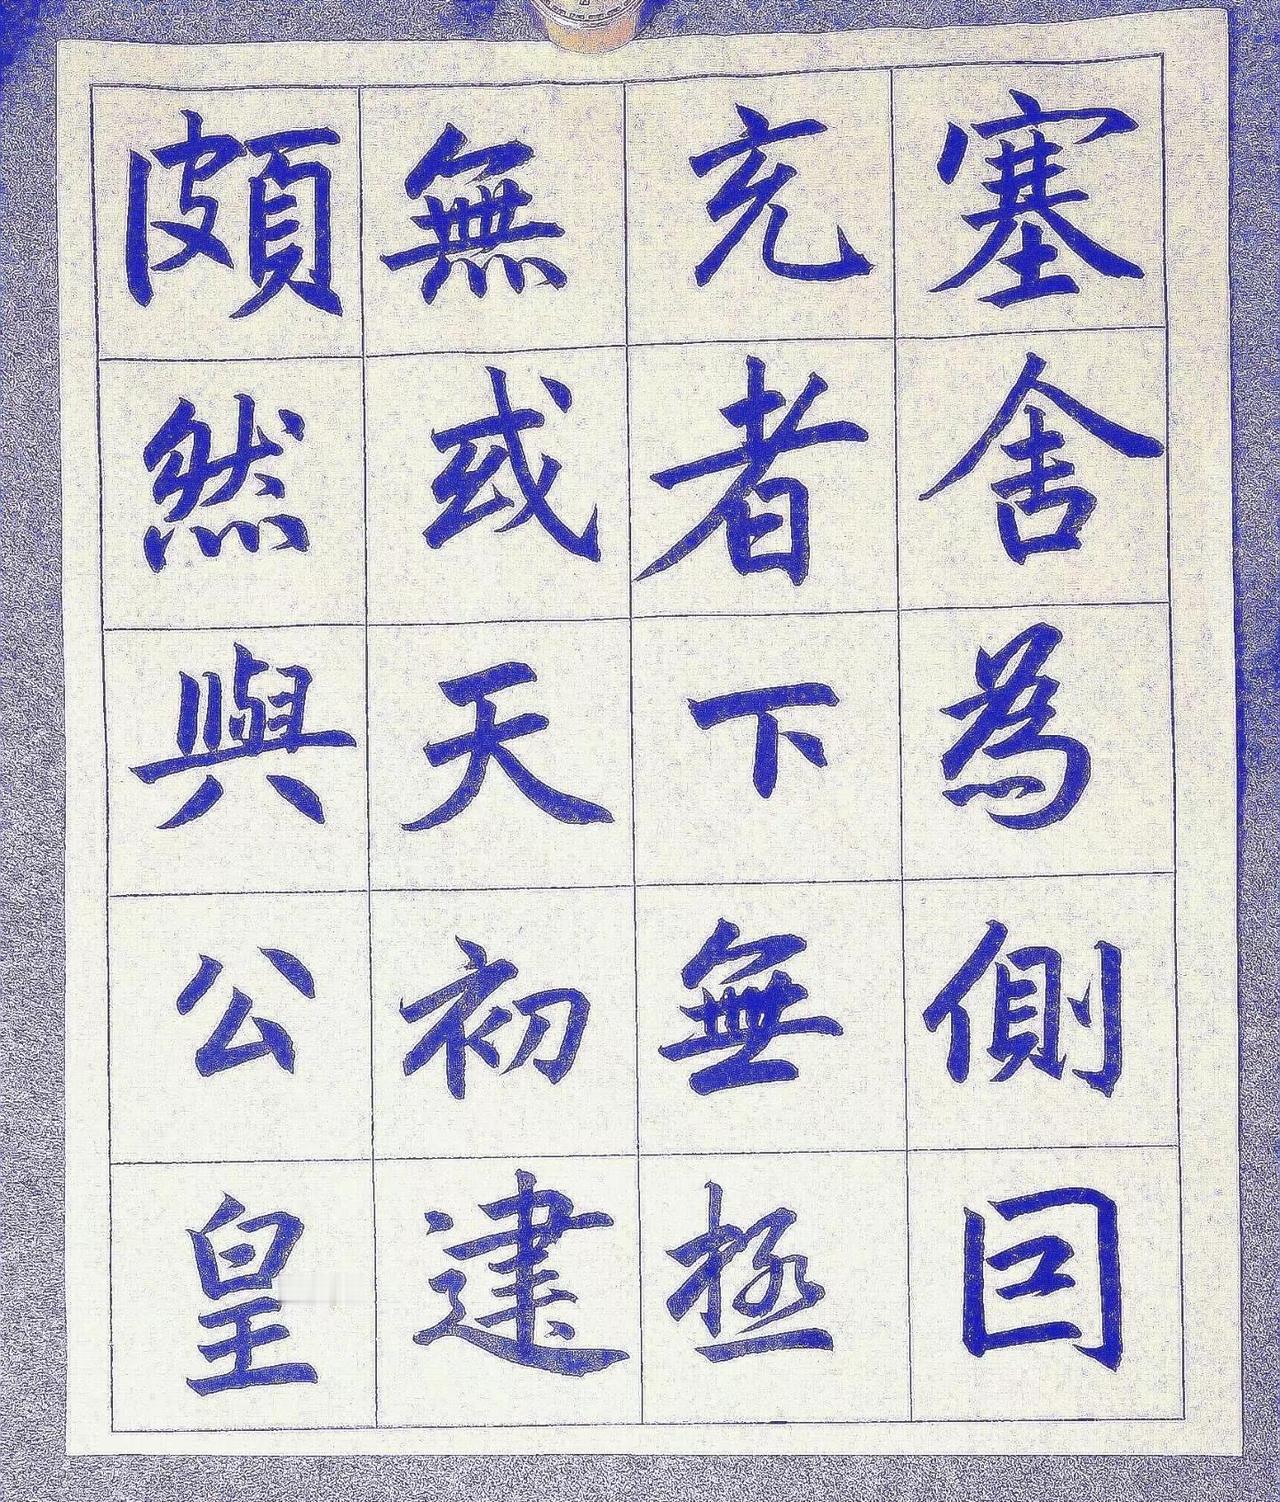 頗無充塞
然或者舍
與天下為
公初無側
皇建極回